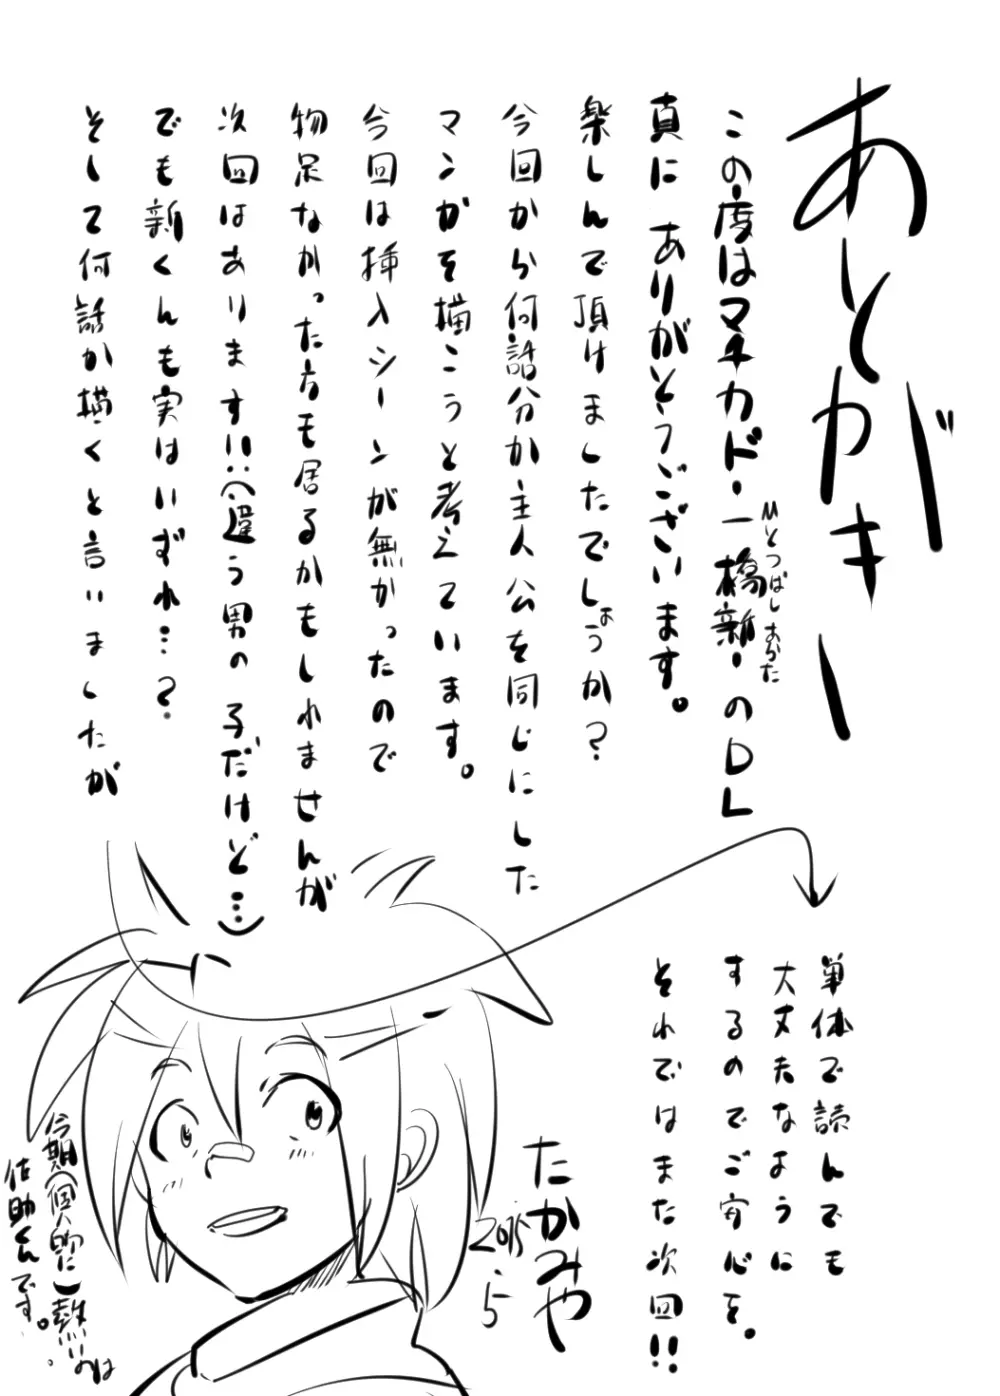 あとがき
この度はマチカドー一橋新ーのDL
ひとつばし あらた
真にありがとうございます。
楽しんで頂けましたでしょうか?
今回から何話分か主人公を同じにした
マンガを描こうと考えています。
今回は挿入シーンが無かったので
物足なかった方も居るかもしれませんが
次回はあります!!(違う男の子だけど…)
でも新くんも実はいずれ…?
そして何話か描くと言いましたが
単体で読んでも
大丈夫なように
するのでご安心を。
それではまた次回!!
たかみや
2015.5
今期(個人的に)熱いのは
佐助くんです。